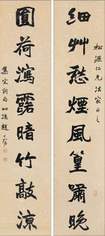 細艸愁煙風篁嘯晚
圓荷瀉露暗竹敲涼